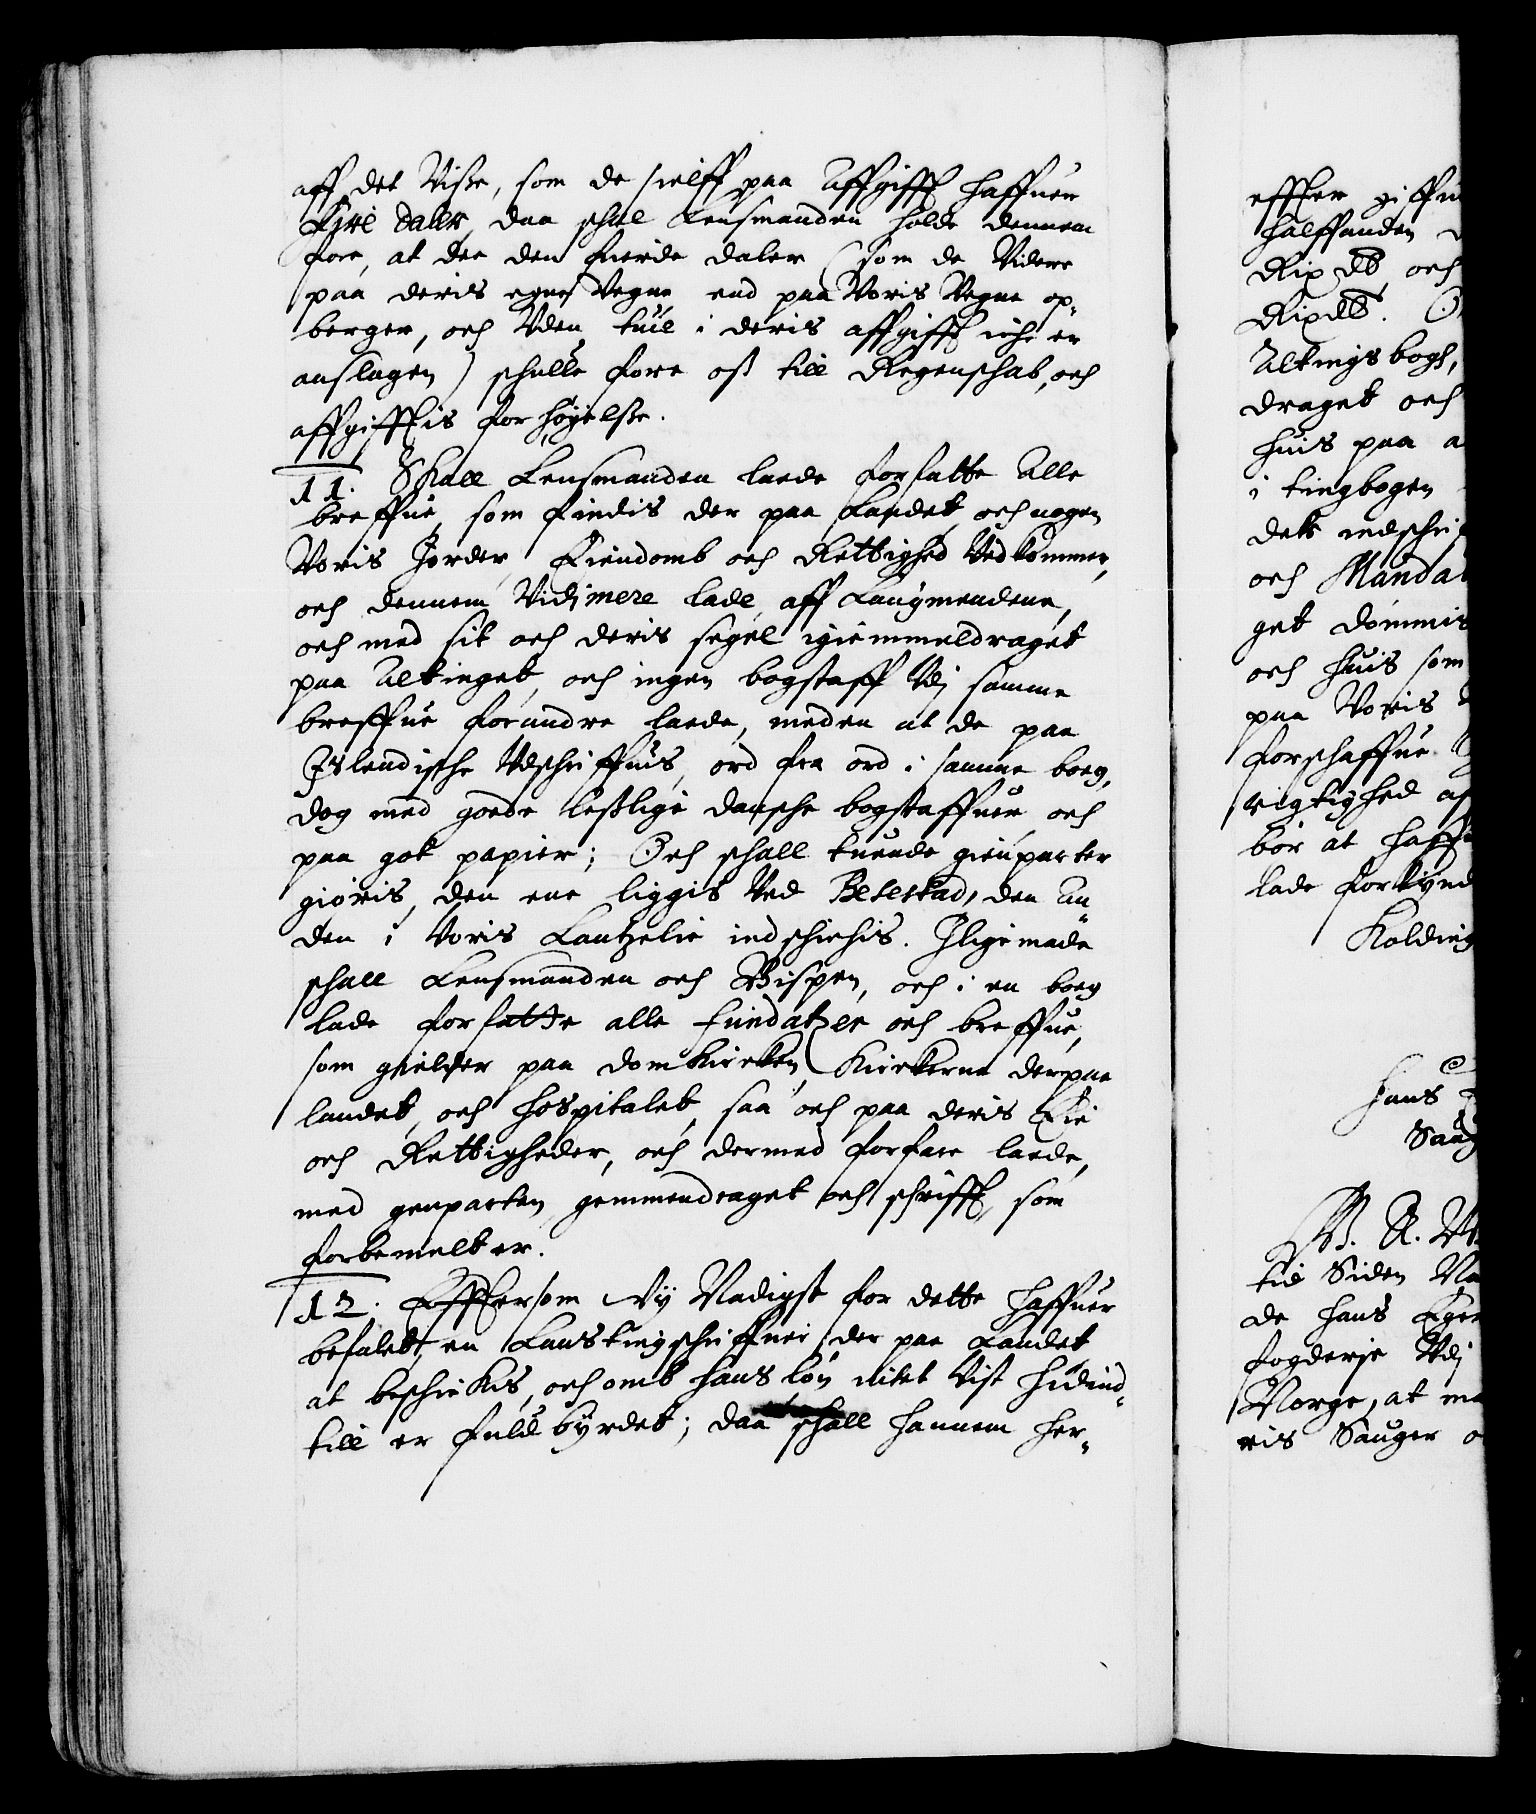 aff det Visse, som de sielff paa Affgifft haffuer
Fire daler, daa schal Lensmanden holde dennem
fore, at den den fierde daler (som de Videre
paa deris egne Vegne end paa Voris Vegne op„
berger, och Vden tuil i deris affgifft iche er
anslagen) schulle føre oß till Regenschab, och
affgifftis forhøyelsse.
11. Skall Lensmanden laede forfatte Alle
breffue, som findis der paa Landet, och nogen
Voris Jorder, Eiendomb och Rettighed Vedkommer,
och dennem Vidimere lade, aff Laugmendene,
och med sit och deris segel igiemmeldraget
paa Altinget, och ingen bogstaff Vdj samme
breffue forandre laede, meden at de paa
Islendische Vdschriffuis, ord fra ord i samme boeg,
dog med goede leßlige dansche bogstaffuer, och
paa got papier; Och schall tuende gienparter
giøris, den ene liggis Ved Besestad, den An„
den i Voris Cantzelie indschichis. Jligemaade
schall Lensmanden och Bispen, och i en boeg
lade forfatte alle fundatzer och breffue,
som gielder paa domkircken, Kirckerne der paa
landet, och hospitalet, saa och paa deris Eie
och Rettigheder, och dermed forfare laede,
med genparten gemmendraget och schrifft, som
forbemelt er.
12. Efftersom Vy Naadigst for dette haffuer
befalet, en Lanstingschriffuer der paa Landet
at beschickis, och omb hans løn intet Vist hidind„
till er fuldbyrdet; daa schall hannem her„
effter giffue
halffanden
Rixdlr och
Rixdlr.
Altings bogh,
draget och
huis paa
i tingbogen
dets indschri
och Manda
get dømmis
och huis som
paa Voris
forschaffue
rigtighed
bør at haffue
lade forkynd
Kolding
Hans
Saug
tid Siden
de Hans Eger
fogderje Vdj
Norge, at
ris Sauger